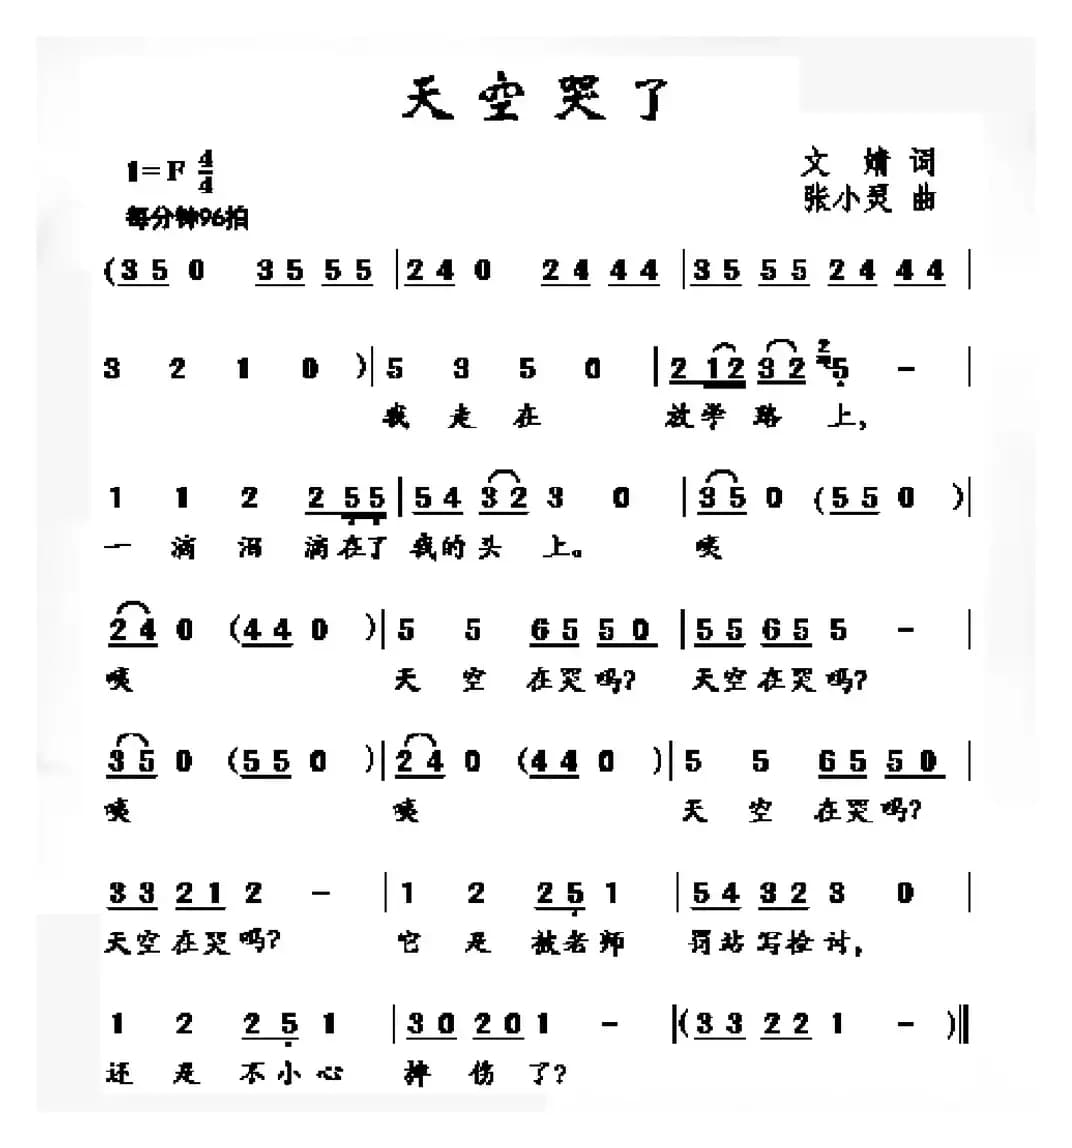 天空哭了
1=F 4/4
文婧 词
每分钟96拍
张小灵 曲
(3 5 0 3 5 5 5 | 2 4 0 2 4 4 4 | 3 5 5 5 2 4 4 4 |
3 2 1 0 ) | 5 3 5 0 | 2 1 2 3 2 2 5 - |
我走在 放学路上,
1 1 2 2 5 5 | 5 4 3 2 3 0 | 3 5 0 (5 5 0 ) |
一滴泪滴在了我的头上。 咦
2 4 0 (4 4 0 ) | 5 5 6 5 5 0 | 5 5 6 5 5 - |
咦 天空在哭吗? 天空在哭吗?
3 5 0 (5 5 0 ) | 2 4 0 (4 4 0 ) | 5 5 6 5 5 0 |
咦 咦 天空在哭吗?
3 3 2 1 2 - | 1 2 2 5 1 | 5 4 3 2 3 0 |
天空在哭吗? 它是被老师 罚站写检讨,
1 2 2 5 1 | 3 0 2 0 1 - ‖(3 3 2 2 1 - )‖
还是不小心 摔伤了?